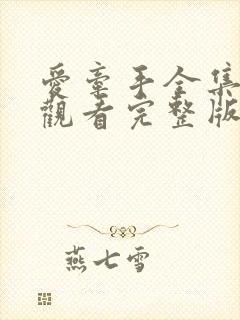 愛牽手全集
觀看完整版
燕七雪